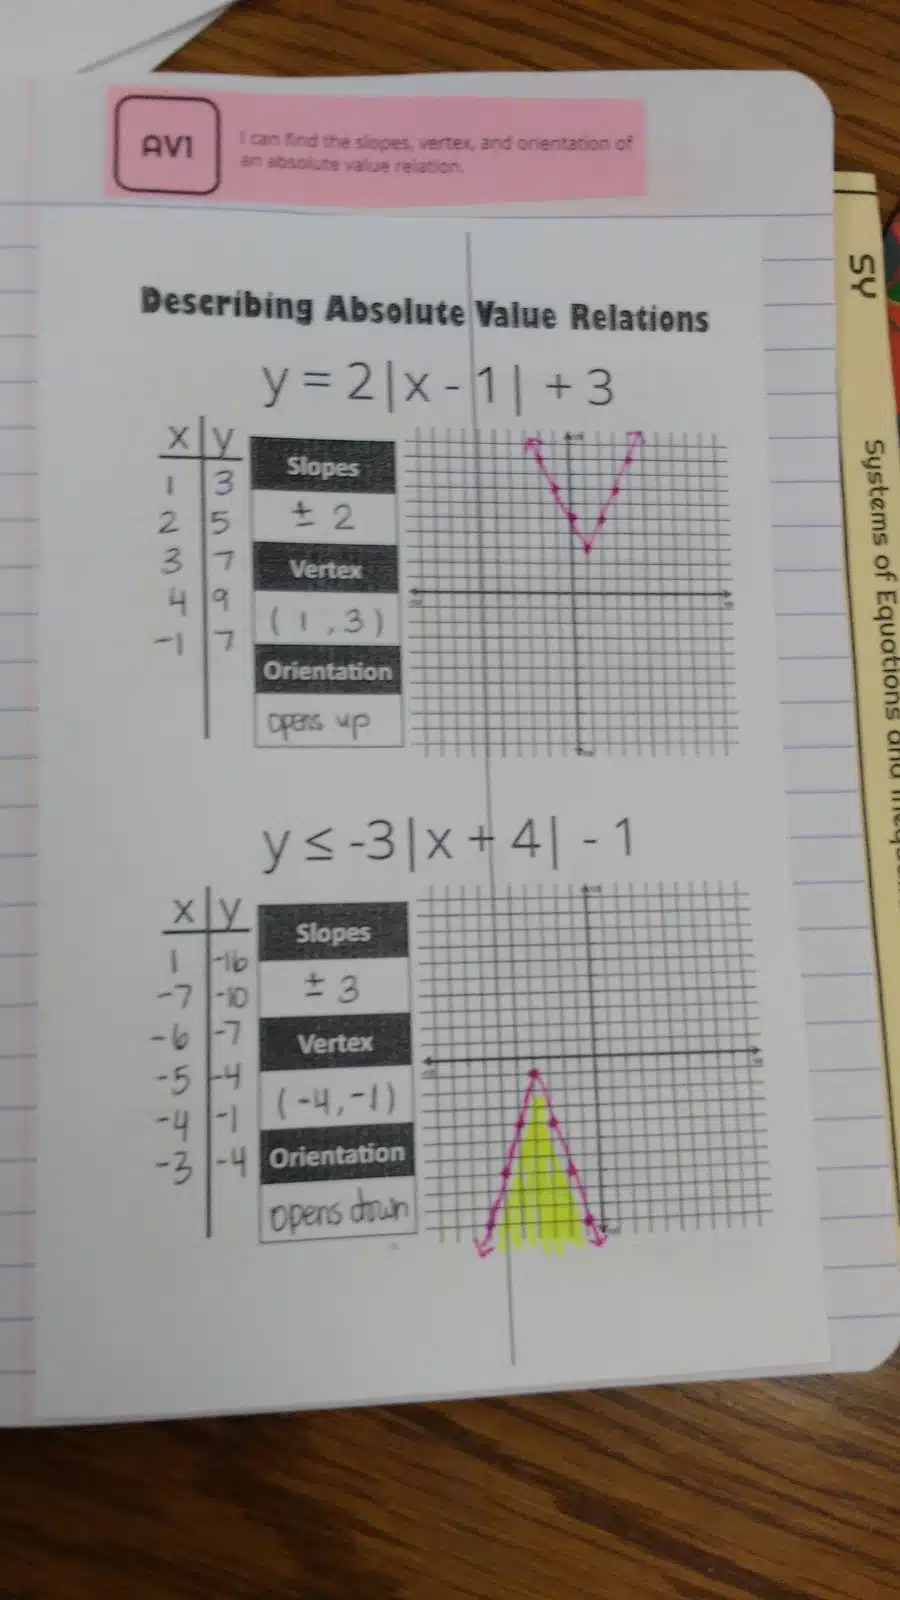 AV1
I can find the slopes, vertex, and orientation of
an absolute value relation.
Describing Absolute Value Relations
y = 2|x - 1| + 3
x y
1 3
2 5
3 7
4 9
-1 7
Slopes
± 2
Vertex
(1, 3)
Orientation
opens up
y ≤ -3|x + 4| - 1
x y
1 -16
-7 -10
-6 -7
-5 -4
-4 -1
-3 -4
Slopes
± 3
Vertex
(-4, -1)
Orientation
opens down
SY
Systems of Equations and